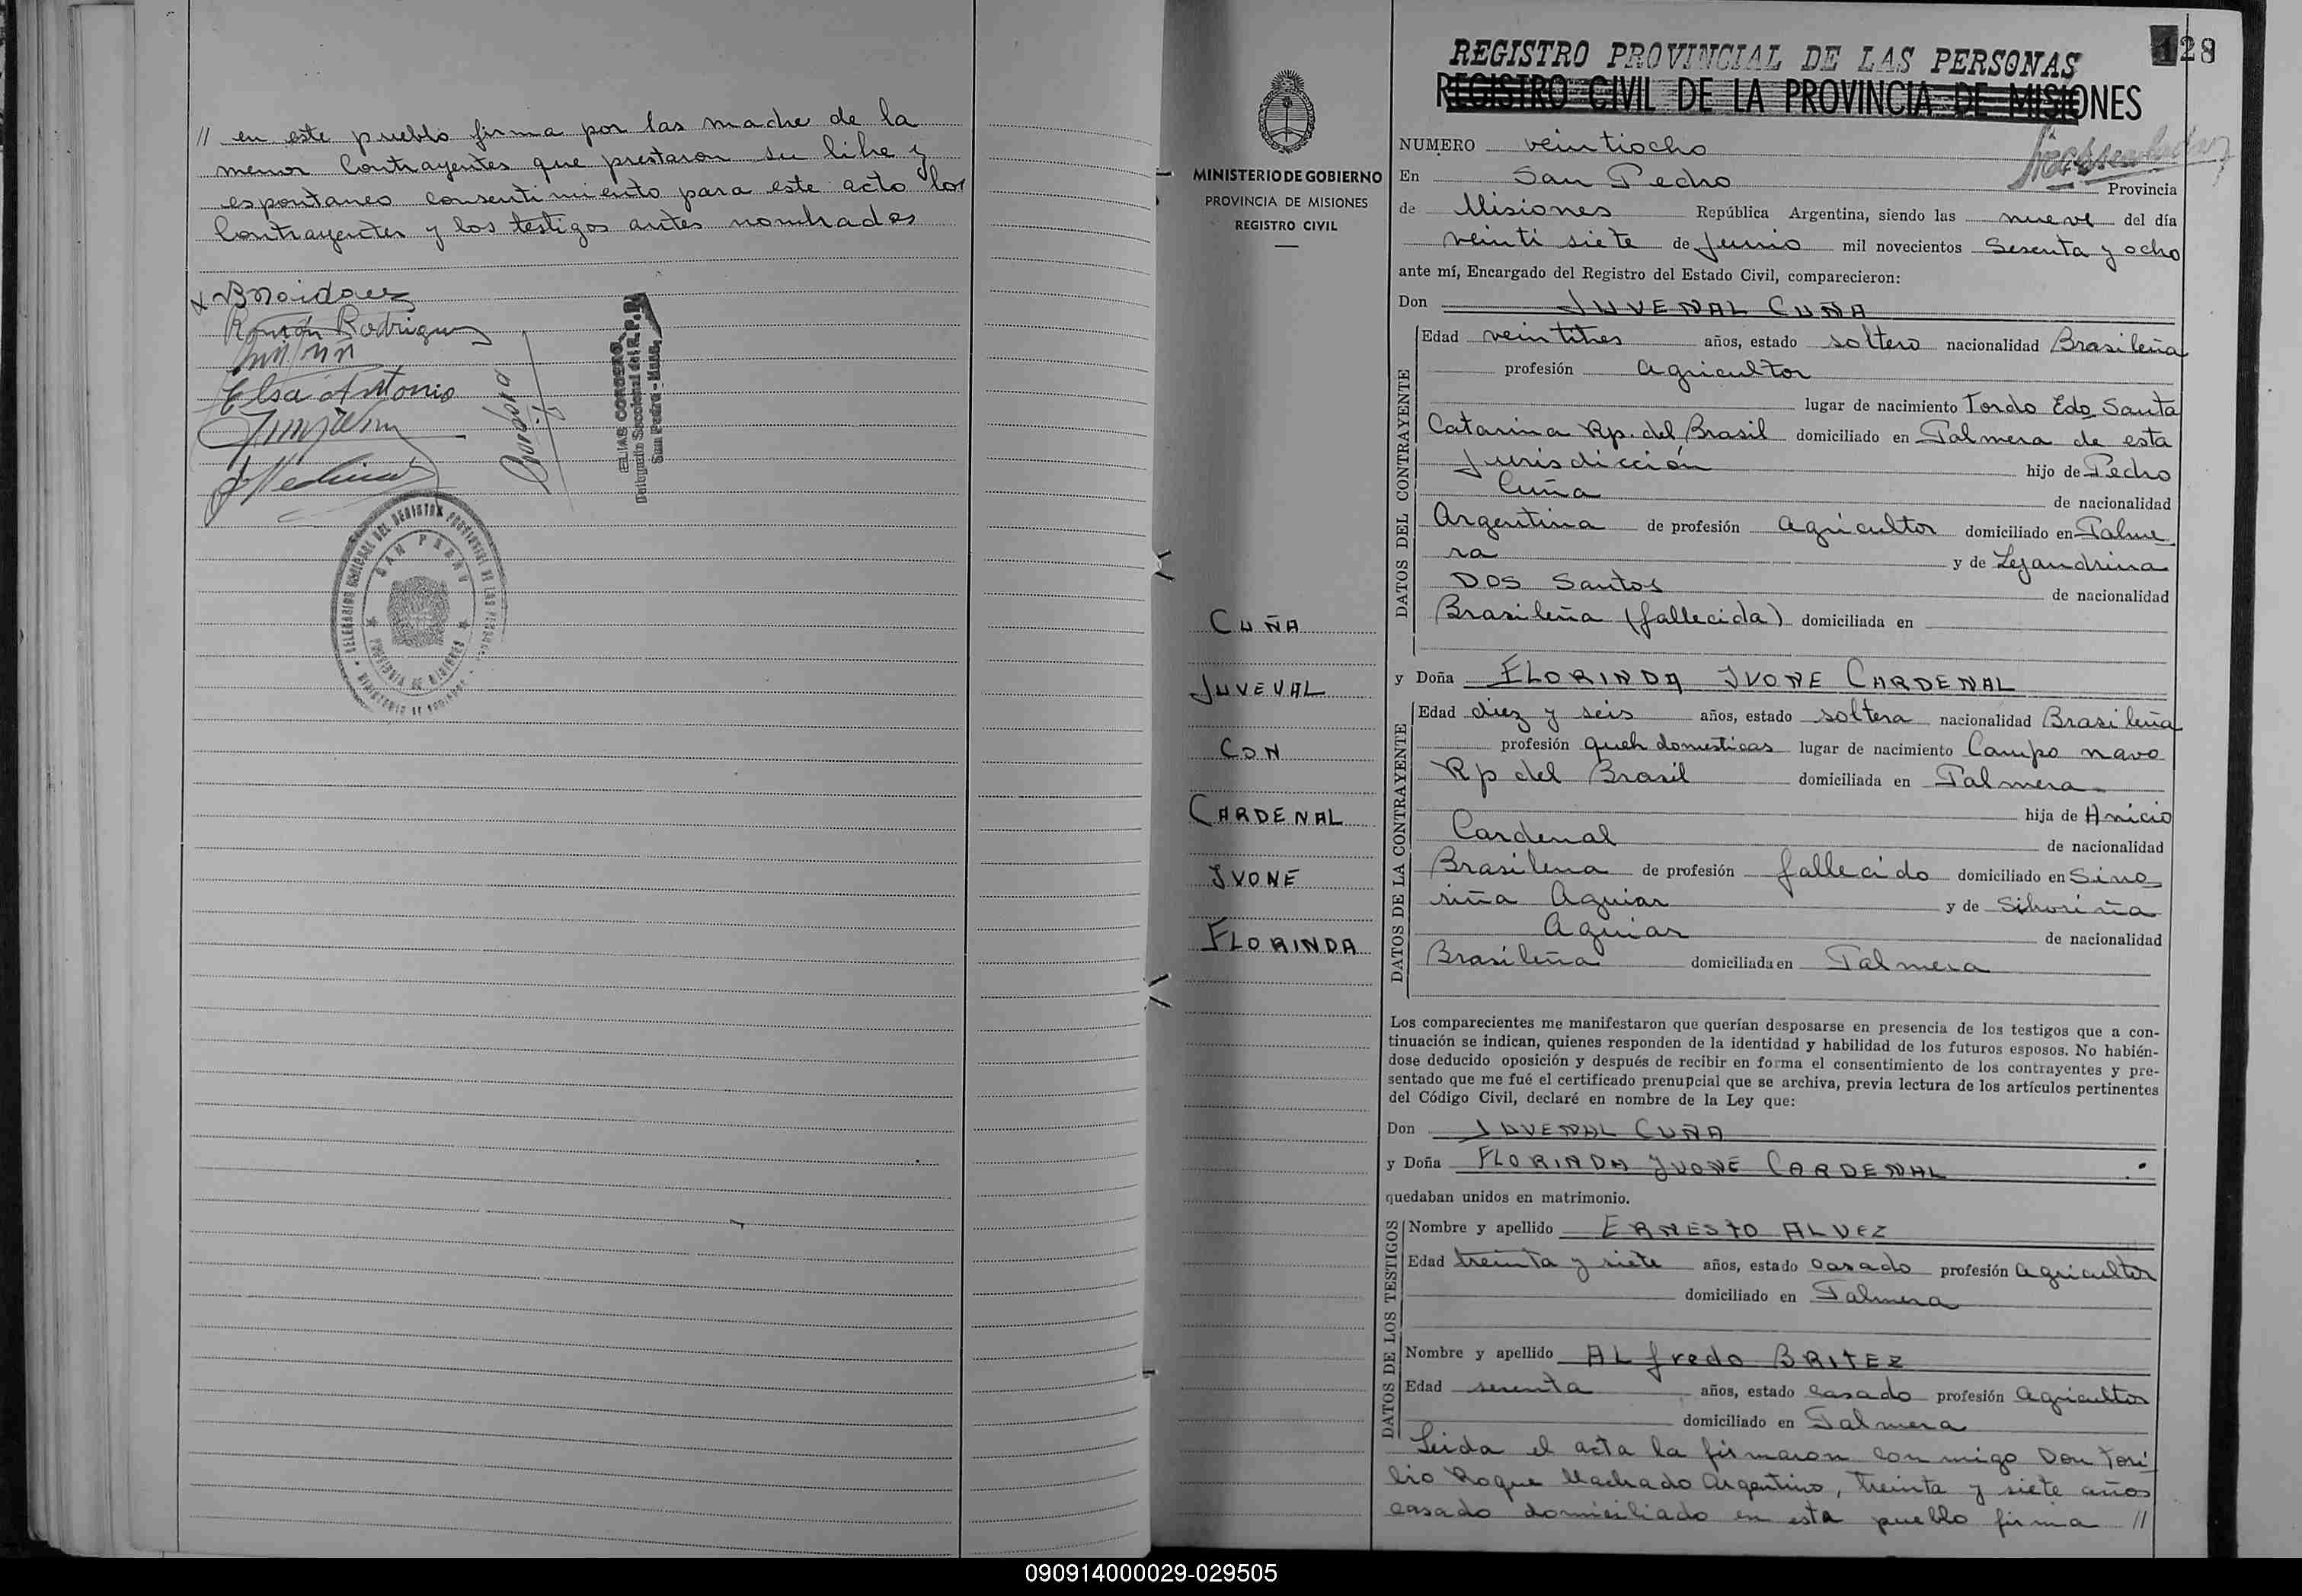 // en este pueblo firma por las madre de la
menor Contrayentes que prestaron su libre y
espontaneo consentimiento para este acto los
Contrayentes y los testigos antes nombrados
Román Rodriguez
Elsa Antonio
ELIAS CORDERO
Delegado Seccional del R.P.P.
San Pedro - Mnes.
PROVINCIA DE MISIONES
MINISTERIO DE GOBIERNO
PROVINCIA DE MISIONES
REGISTRO CIVIL
CUÑA
JUVEVAL
CON
CARDENAL
IVONE
FLORINDA
128
REGISTRO PROVINCIAL DE LAS PERSONAS
REGISTRO CIVIL DE LA PROVINCIA DE MISIONES
NUMERO veintiocho
En San Pedro Provincia
de Misiones República Argentina, siendo las nueve del día
veinti siete de Junio mil novecientos Sesenta y ocho
ante mí, Encargado del Registro del Estado Civil, comparecieron:
Don JUVENAL CUÑA
DATOS DEL CONTRAYENTE
Edad veintitres años, estado soltero nacionalidad Brasileña
profesión agricultor
lugar de nacimiento Tordo Edo Santa
Catarina Rp. del Brasil domiciliado en Palmera de esta
Jurisdicción hijo de Pedro
Cuña de nacionalidad
Argentina de profesión agricultor domiciliado en Palme
ra y de Lejandrina
DOS Santos de nacionalidad
Brasileña (fallecida) domiciliada en
y Doña FLORINDA IVONE CARDENAL
DATOS DE LA CONTRAYENTE
Edad diez y seis años, estado soltera nacionalidad Brasileña
profesión queh domesticas lugar de nacimiento Campo navo
Rp del Brasil domiciliada en Palmera
hija de Anicio
Cardenal de nacionalidad
Brasilena de profesión fallecido domiciliado en Sino
riña Aguiar y de Sihoriña
Aguiar de nacionalidad
Brasileña domiciliada en Palmera
Los comparecientes me manifestaron que querían desposarse en presencia de los testigos que a con-
tinuación se indican, quienes responden de la identidad y habilidad de los futuros esposos. No habién-
dose deducido oposición y después de recibir en forma el consentimiento de los contrayentes y pre-
sentado que me fué el certificado prenupcial que se archiva, previa lectura de los artículos pertinentes
del Código Civil, declaré en nombre de la Ley que:
Don JUVENAL CUÑA
y Doña FLORINDA IVONE CARDENAL
quedaban unidos en matrimonio.
DATOS DE LOS TESTIGOS
Nombre y apellido ERNESTO ALVEZ
Edad treinta y siete años, estado casado profesión agricultor
domiciliado en Palmera
Nombre y apellido ALfredo BRITEZ
Edad sesenta años, estado casado profesión agricultor
domiciliado en Palmera
Leida el acta la firmaron con migo Don Tori
bio Roque Machado Argentino, treinta y siete años
casado domiciliado en esta pueblo firma //
090914000029-029505